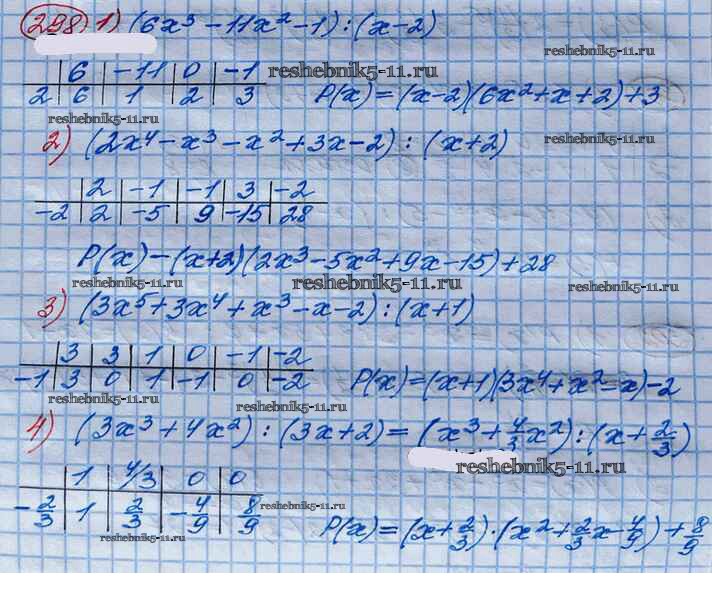 298 1) (6x³ - 11x² - 1) : (x - 2)
6 | -11 | 0 | -1
reshebnik5-11.ru
2 | 6 | 1 | 2 | 3 P(x) = (x-2)(6x²+x+2)+3
reshebnik5-11.ru
2) (2x⁴ - x³ - x² + 3x - 2) : (x+2)
reshebnik5-11.ru
2 | -1 | -1 | 3 | -2
-2 | 2 | -5 | 9 | -15 | 28
P(x) - (x+2)(2x³ - 5x² + 9x - 15) + 28
reshebnik5-11.ru reshebnik5-11.ru reshebnik5-11.ru
3) (3x⁵ + 3x⁴ + x³ - x - 2) : (x+1)
3 | 3 | 1 | 0 | -1 | -2
-1 | 3 | 0 | 1 | -1 | 0 | -2 P(x) = (x+1)(3x⁴ + x² - x) - 2
reshebnik5-11.ru reshebnik5-11.ru
4) (3x³ + 4x²) : (3x+2) = (x³ + 4/3 x²) : (x + 2/3)
reshebnik5-11.ru
1 | 4/3 | 0 | 0
-2/3 | 1 | 2/3 | -4/9 | 8/9
reshebnik5-11.ru
P(x) = (x + 2/3) · (x² + 2/3 x - 4/9) + 8/9